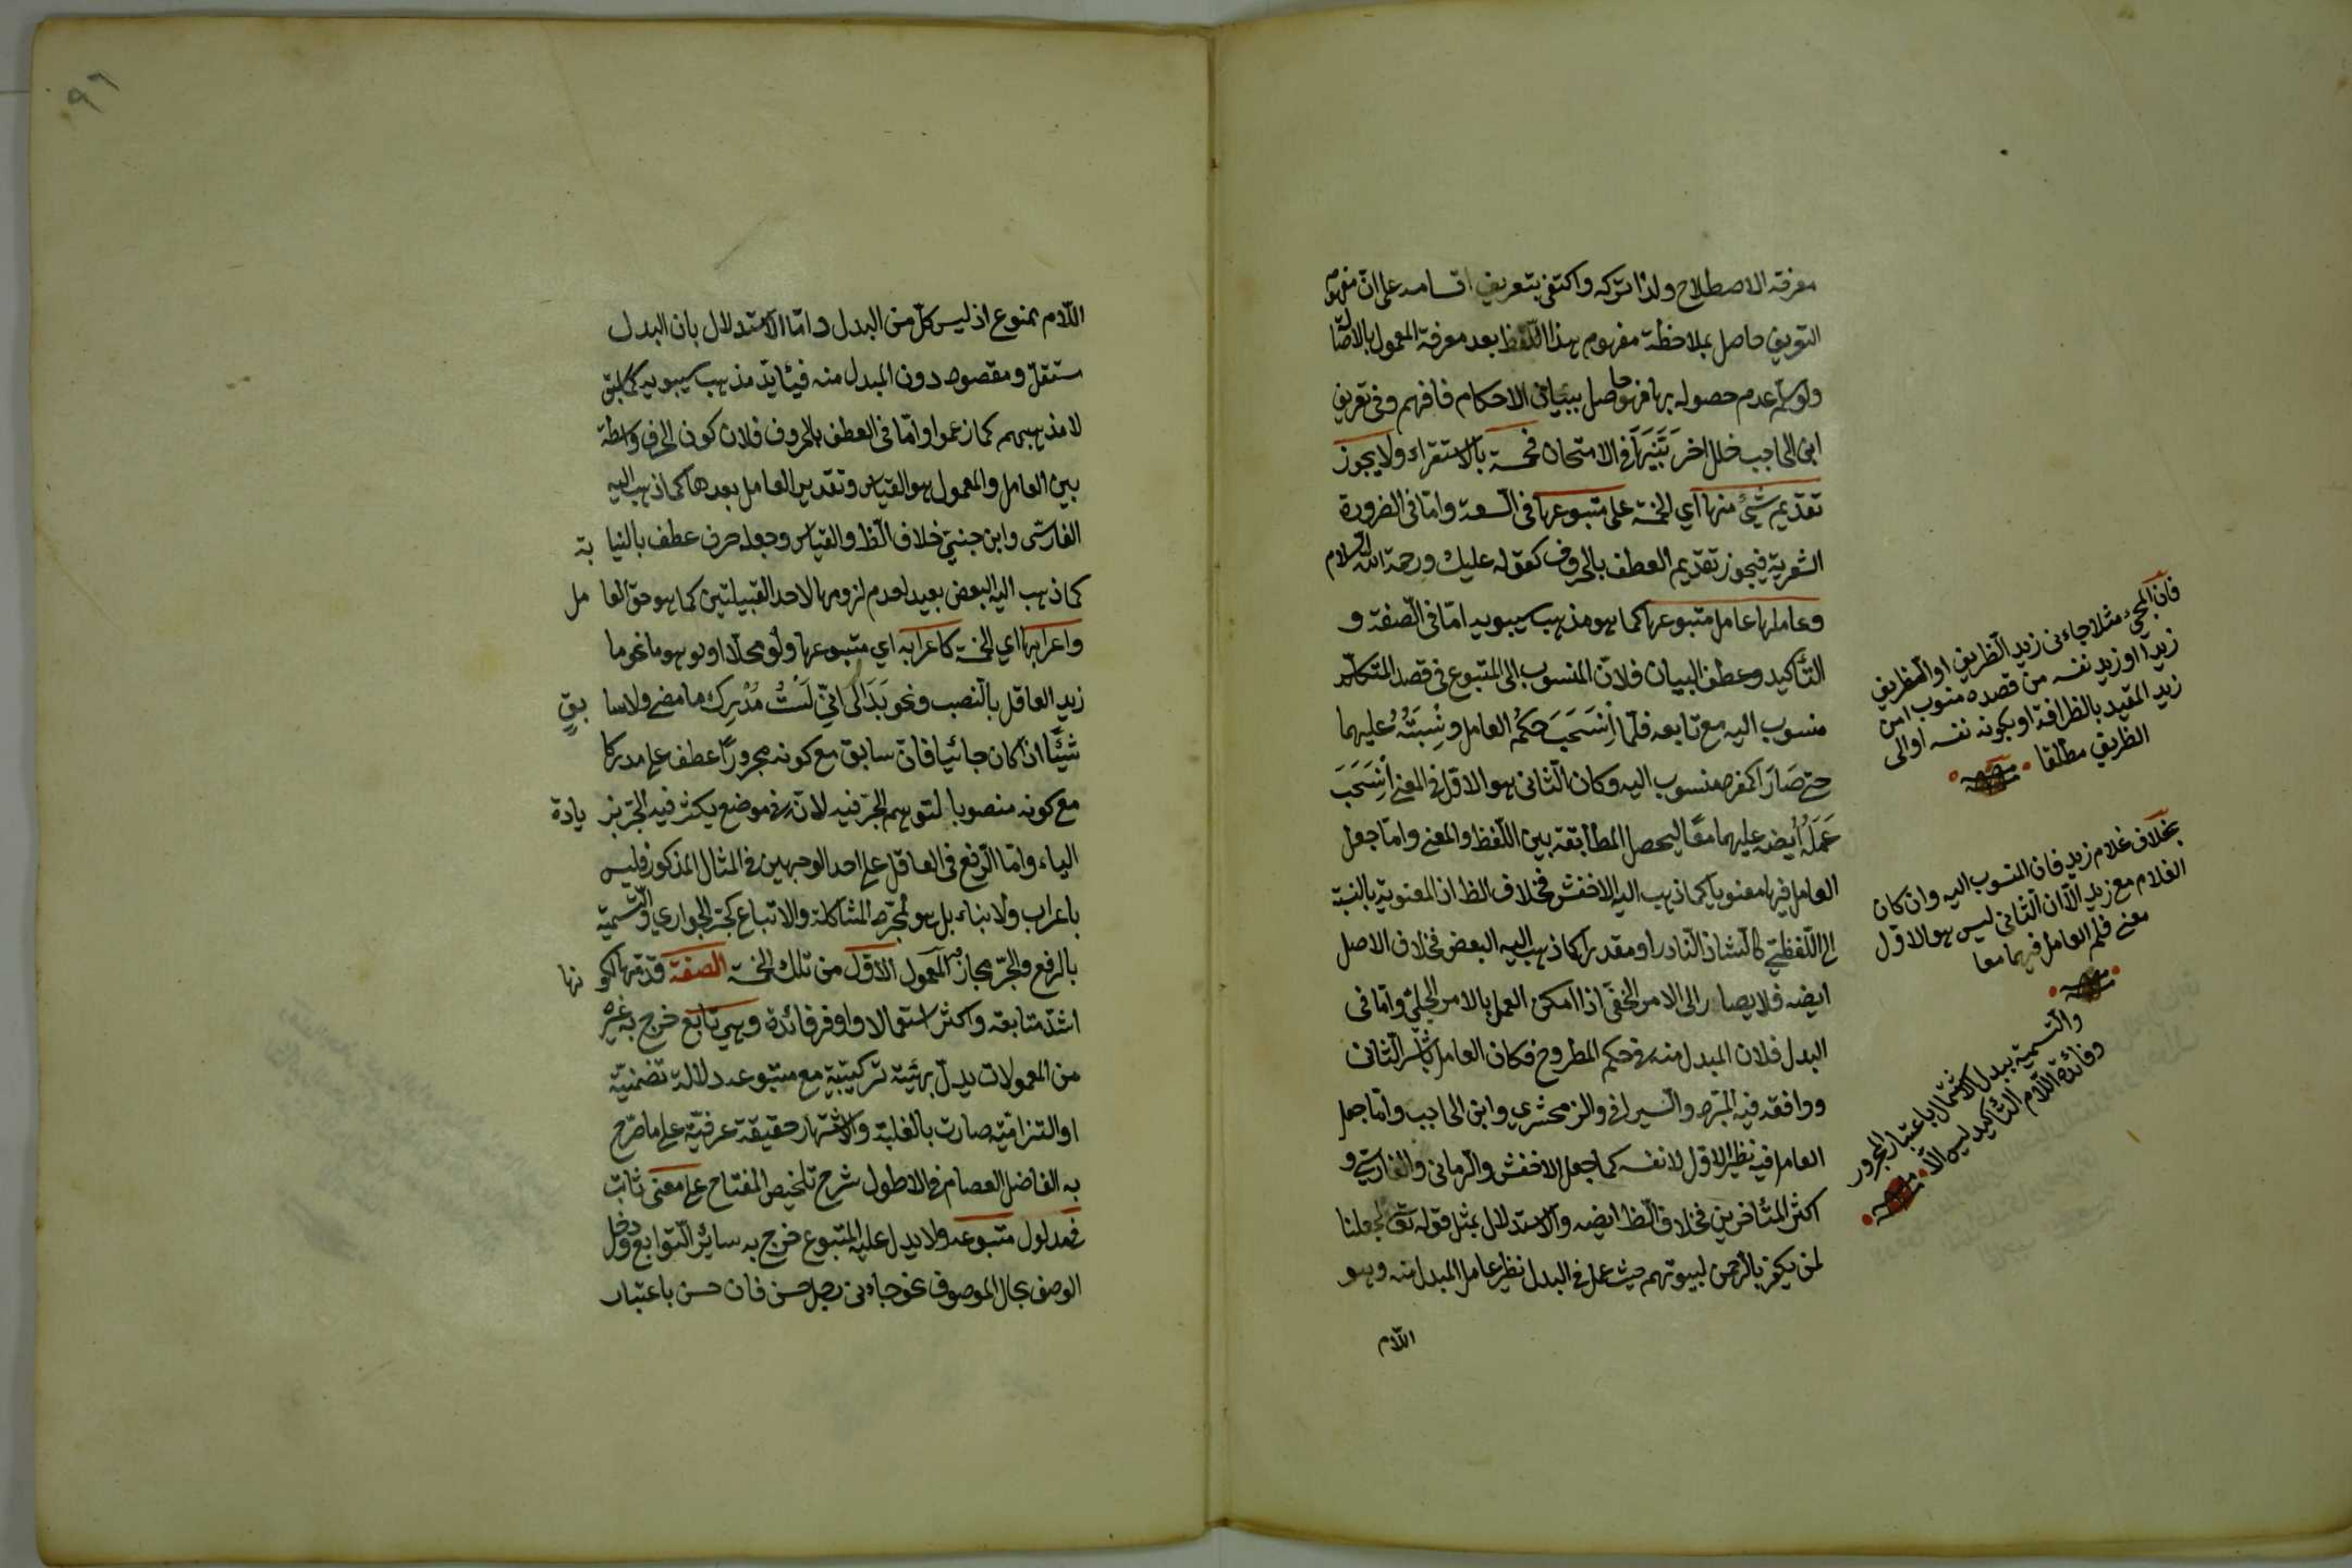 معرفة الاصطلاح ولذا تركه واكتفى بتعريف اقسامه على ان مفهوم
التعريف حاصل بملاحظة مفهوم هذا اللفظ بعد معرفة المعمول بالاصالة
ولو سلم عدم حصوله بها فهو حاصل ببيان الاحكام فافهم وفي تعريف
ابن الحاجب خلل اخر في الامتحان خمسة بالاستقراء ولا يجوز
تقديم شيئ منها اي الخمسة على متبوعها في السعة واما في الضرورة
الشعرية فيجوز تقديم العطف بالحروف كقوله عليك ورحمة الله السلام
وعاملها عامل متبوعها كما هو مذهب سيبويه اما في الصفة و
التأكيد وعطف البيان فلان المنسوب الى المتبوع في قصد المتكلم
منسوب اليه مع تابعه فلما اِنْسَحَبَ حكمُ العامل ونِسْبَتُهُ عليهما
حتى صَارَا كمفرد منسوب اليه وكان الثاني هو الاول في المعنى اِنْسَحَبَ
عَمَلُهُ ايضه عليهما معًا ليحصل المطابقة بين اللفظ والمعنى واما جعل
العامل فيها معنويا كما ذهب اليه الاخفش فخلاف الظ اذ المعنوية بالنسبة
الى اللفظي كالشاذ النادر او مقدرا كما ذهب اليه البعض فخلاف الاصل
ايضه فلا يصار الى الامر الخفي اذا امكن العمل بالامر الجلي واما في
البدل فلان المبدل منه في حكم المطروح فكان العامل باشر الثاني
ووافقه فيه المبرد والسيرافي والزمخشري وابن الحاجب واما جعل
العامل فيه نظير الاول لا نفسه كما جعل الاخفش والرماني والفارسي و
اكثر المتأخرين فخلاف الظ ايضه والاستدلال بمثل قوله تع لجعلنا
لمن يكفر بالرحمن لبيوتهم حيث عمل في البدل نظير عامل المبدل منه وهو
اللام
فان المجيئ مثلا جاءني زيد الظريف او الظريف
زيد او زيد نفسه من قصده منسوب
زيد المقيد بالظرافة او بكونه نفسه او الى
الظريف مطلقا
بخلاف غلام زيد فان المنسوب اليه وان كان
الغلام مع زيد الا ان الثاني ليس هو الاول
معنى فلم العامل فيهما معا
والتسمية ببدل الاشتمال باعتبار المجرور
وفائدة اللام التأكيد ليس الا
٩٦
اللام ممنوع اذ ليس كل من البدل واما الاستدلال بان البدل
مستقل ومقصود دون المبدل منه فيؤيد مذهب سيبويه كما سبق
لا مذهبهم كما زعموا واما في العطف بالحروف فلان كون الحرف واسطة
بين العامل والمعمول هو القياس وتقدير العامل بعدها كما ذهب اليه
الفارسي وابن جني خلاف الظ والقياس وجعله حرف عطف بالنيابة
كما ذهب اليه البعض بعيد لعدم لزومها لاحد القبيلتين كما هو حق العامل
واعرابها اي الخمسة كاعرابه اي متبوعها ولو محلا او توهما نحو ما
زيد العاقل بالنصب ونحو بَدَا لى انِّي لَسْتُ مُدْرِكَ ما مضى ولا سابقٍ
شيئًا اذا كان جائيا فان سابق مع كونه مجرورًا عطف على مدركا
مع كونه منصوبا لتوهم الجر فيه لانه في موضع يكثر فيه الجر بزيادة
الباء واما الرفع في العاقل على احد الوجهين في المثال المذكور فليس
باعراب ولا بناء بل هو لمجرد المشاكلة والاتباع كجر الجواري والتسمية
بالرفع والجر مجاز المعمول الاول من تلك الخمسة الصفة قدمها لكونها
اشد متابعة واكثر استعمالا واوفر فائدة وهي تابع خرج به غيره
من المعمولات يدل بهيئة تركيبية مع متبوعه دلالة تضمنية
او التزامية صارت بالغلبة والاشتهار حقيقة عرفية على ما صرح
به الفاضل العصام في الاطول شرح تلخيص المفتاح على معنى ثابت
في مدلول متبوعه ولا يدل عليه المتبوع خرج به سائر التوابع ودخل
الوصف بحال الموصوف نحو جاءني رجل حسن فان حسن باعتبار